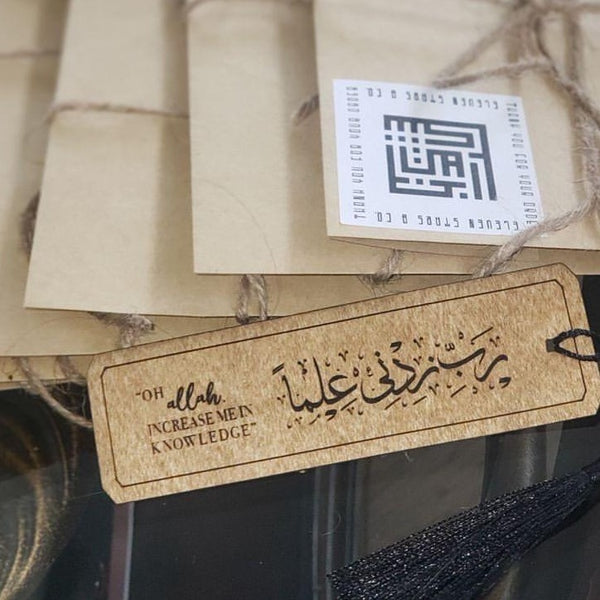 ELEVEN STARS & CO.
THANK YOU FOR YOUR ORDER
ELEVEN STARS & CO.
THANK YOU FOR YOUR ORDER
"OH
allah.
INCREASE ME IN
KNOWLEDGE"
رَبِّ زِدْنِي عِلْمًا